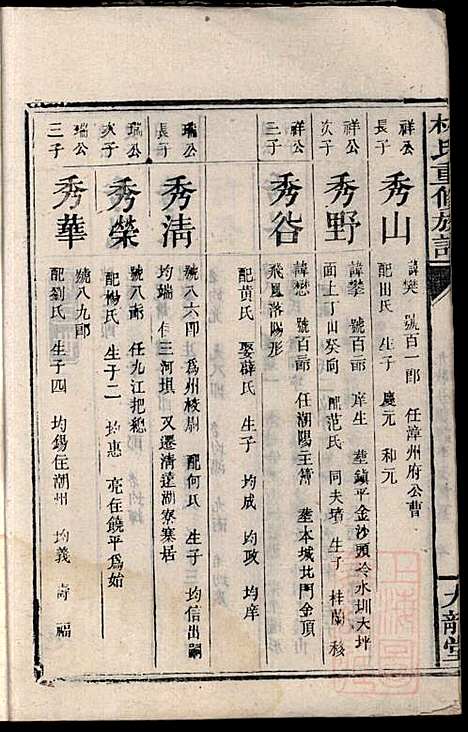 林氏重修族譜
九龍堂
祥公
長子
秀山
諱樊 號百一郎 任漳州府公曹
配田氏 生子 慶元 和元
祥公
次子
秀野
諱攀 號百二郎 庠生 塟鎮平金沙頭冷水圳大坪
面上丁山癸向 配范氏 同夫墳 生子 桂蘭移
祥公
三子
秀谷
諱懋 號百三郎 任潮陽主簿 塟本城北門金頂
飛鳳落陽形
配黃氏 娶薛氏 生子 均成 均政 均庠
瑞公
長子
秀清
號八六郎 為州校尉 配何氏 生子三 均信出嗣
均端 住三河垻 又遷清遠湖寮寨居
瑞公
次子
秀榮
號八郎 任九江把總
配楊氏 生子二 均惠 亮在饒平為始
瑞公
三子
秀華
號八九郎
配劉氏 生子四 均錫在潮州 均義 壽 福